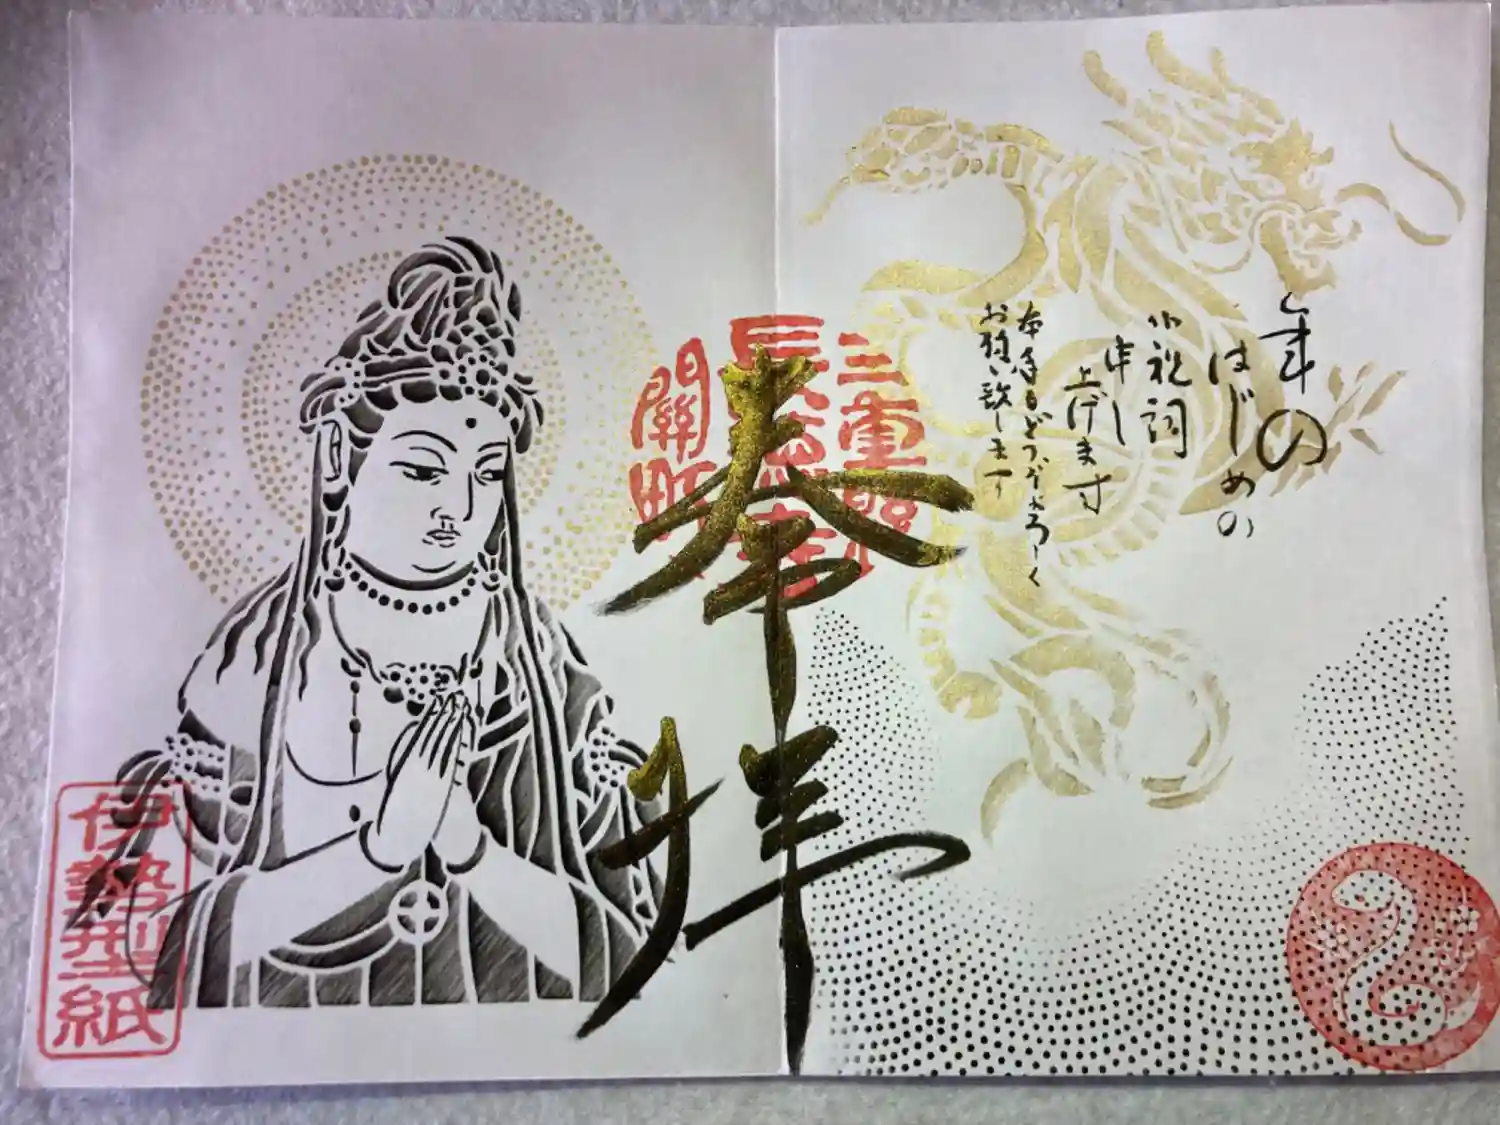 年の
はじめの
御祝詞
申し
上げます
本年もどうぞよろしく
お願い致します
三重縣
關町
奉拝
伊勢型紙